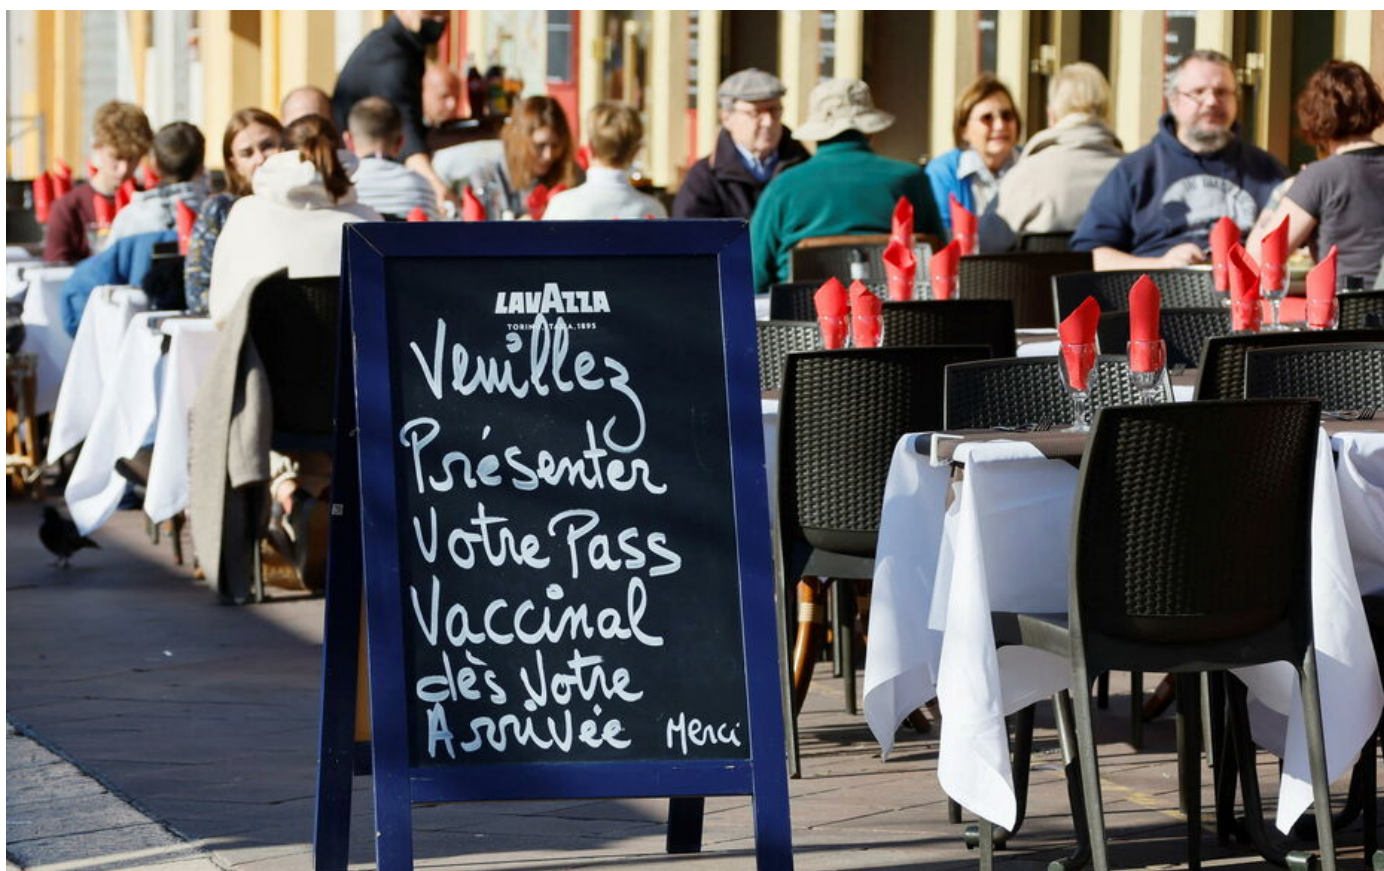 LAVAZZA
TORINO, ITALIA, 1895
Veuillez
Présenter
Votre Pass
Vaccinal
dès Votre
Arrivée Merci